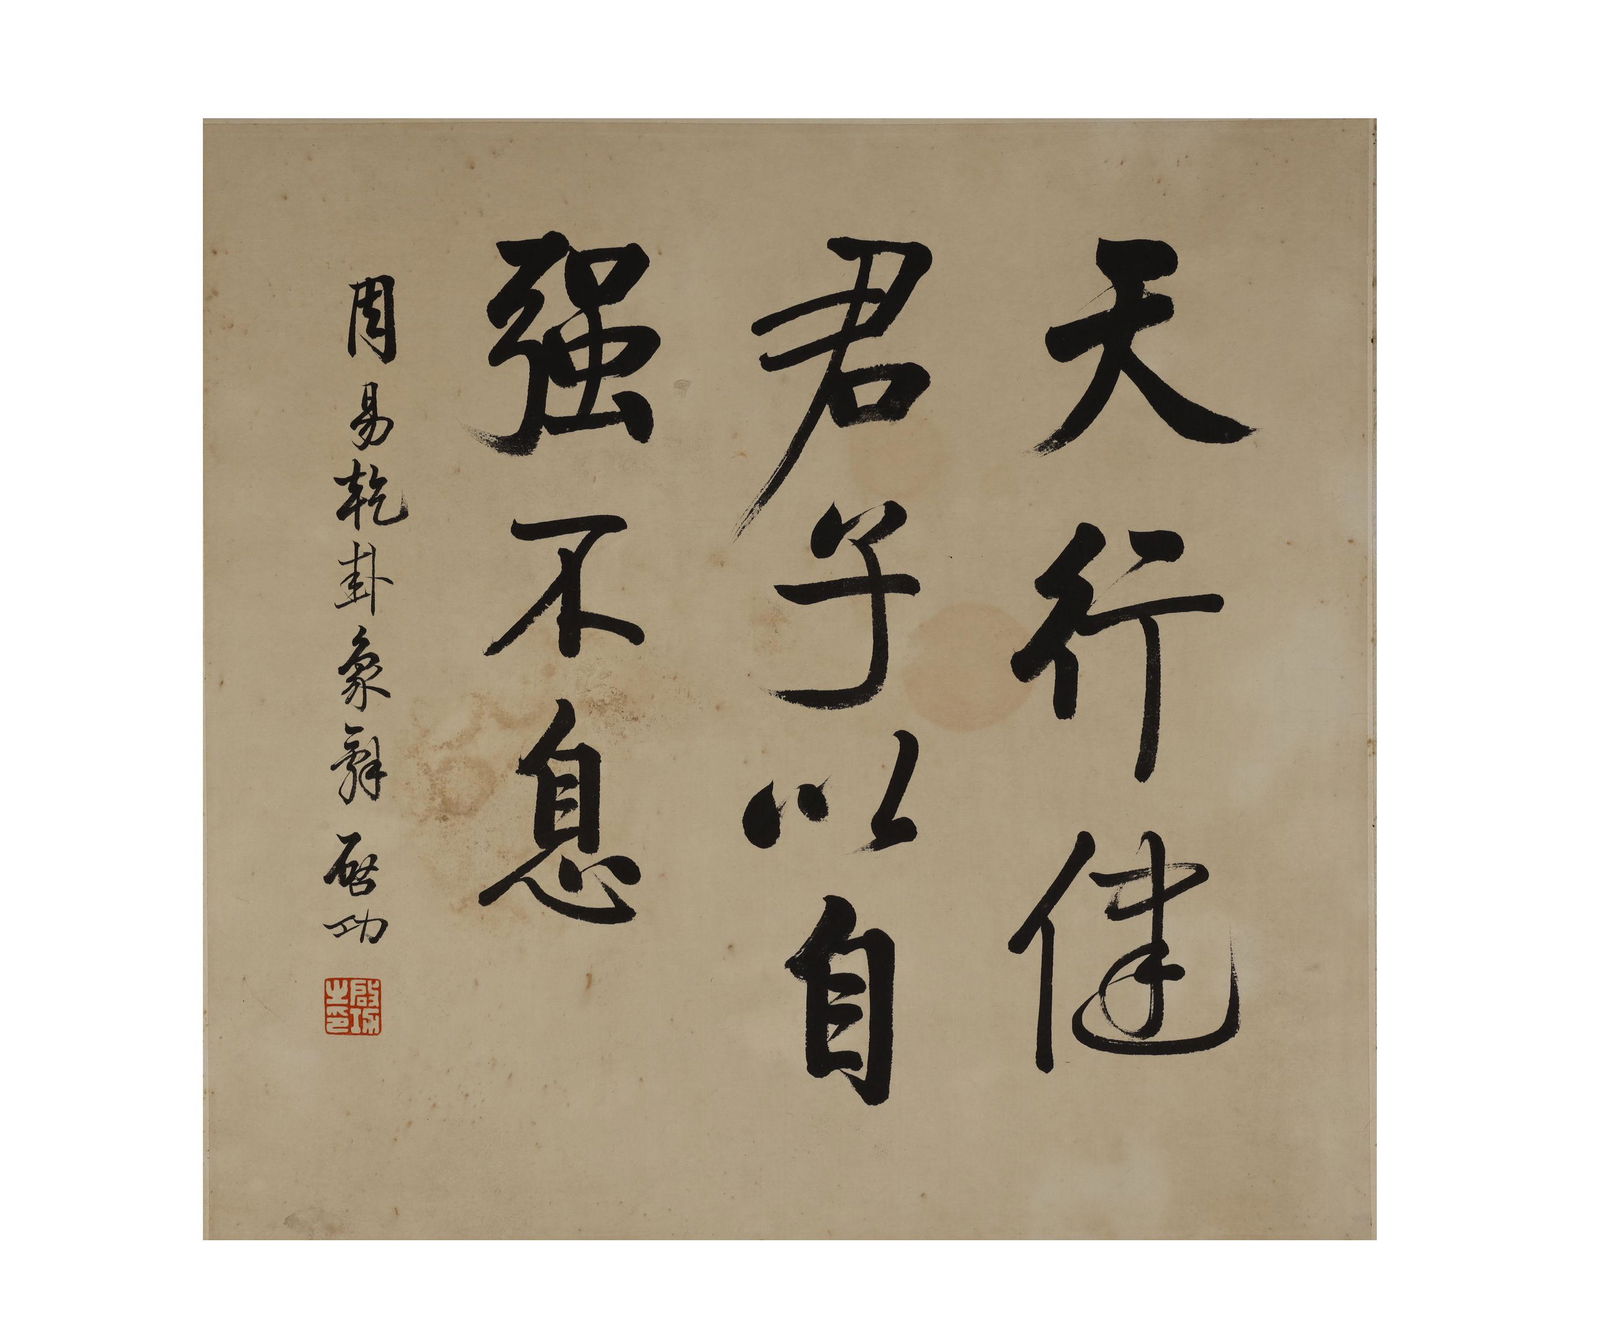 天行健
君子以自
强不息
周易乾卦象辞 启功
启功之印